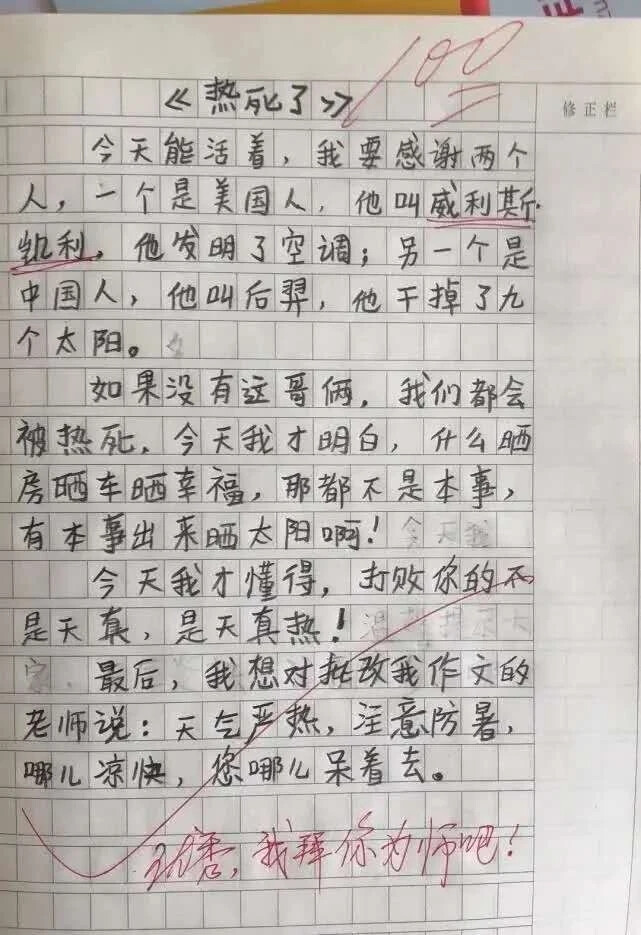 100
证
修正栏
《热死了》
今天能活着，我要感谢两个
人，一个是美国人，他叫威利斯·
凯利，他发明了空调；另一个是
中国人，他叫后羿，他干掉了九
个太阳。
如果没有这哥俩，我们都会
被热死，今天我才明白，什么晒
房晒车晒幸福，那都不是本事，
有本事出来晒太阳啊！
今天我才懂得，打败你的不
是天真，是天真热！
最后，我想对批改我作文的
老师说：天气严热，注意防暑，
哪儿凉快，您哪儿呆着去。
优秀，我拜你为师吧！